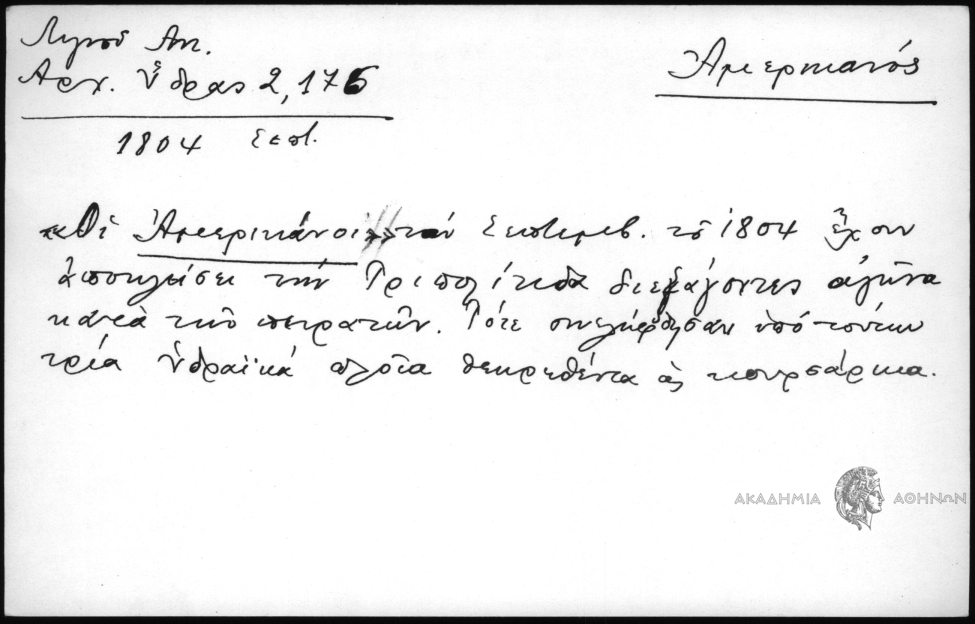 Λιγνοῦ Αντ.
Αρχ. Ὕδρας 2, 176
Ἀμερικανός
1804 Σεπτ.
«Οἱ Ἀμερικάνοι» τὸν Σεπτεμβ. τοῦ 1804 ἔχουν
ἀποκλείσει τὴν Τριπολίτιδα διεξάγοντες ἀγῶνα
κατὰ τῶν πειρατῶν. Τότε συνελήφθησαν ὑπὸ τούτων
τρία ὑδραϊκά πλοῖα θεωρηθέντα ὡς κουρσάρικα.
ΑΚΑΔΗΜΙΑ ΑΘΗΝΩΝ